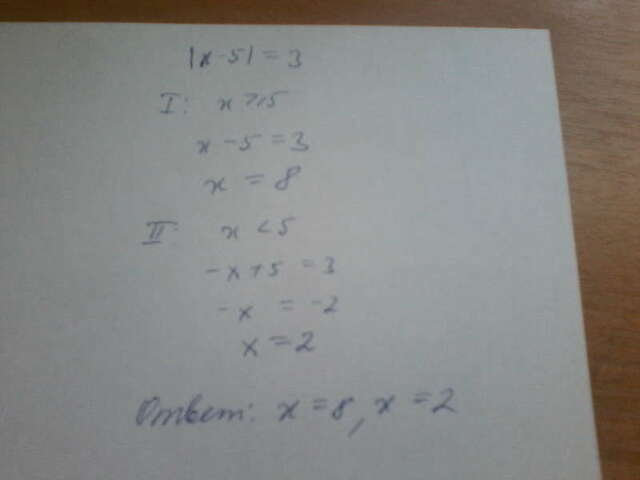 |x-5| = 3
I: x ≥ 5
x - 5 = 3
x = 8
II: x < 5
-x + 5 = 3
-x = -2
x = 2
Ответ: x = 8, x = 2